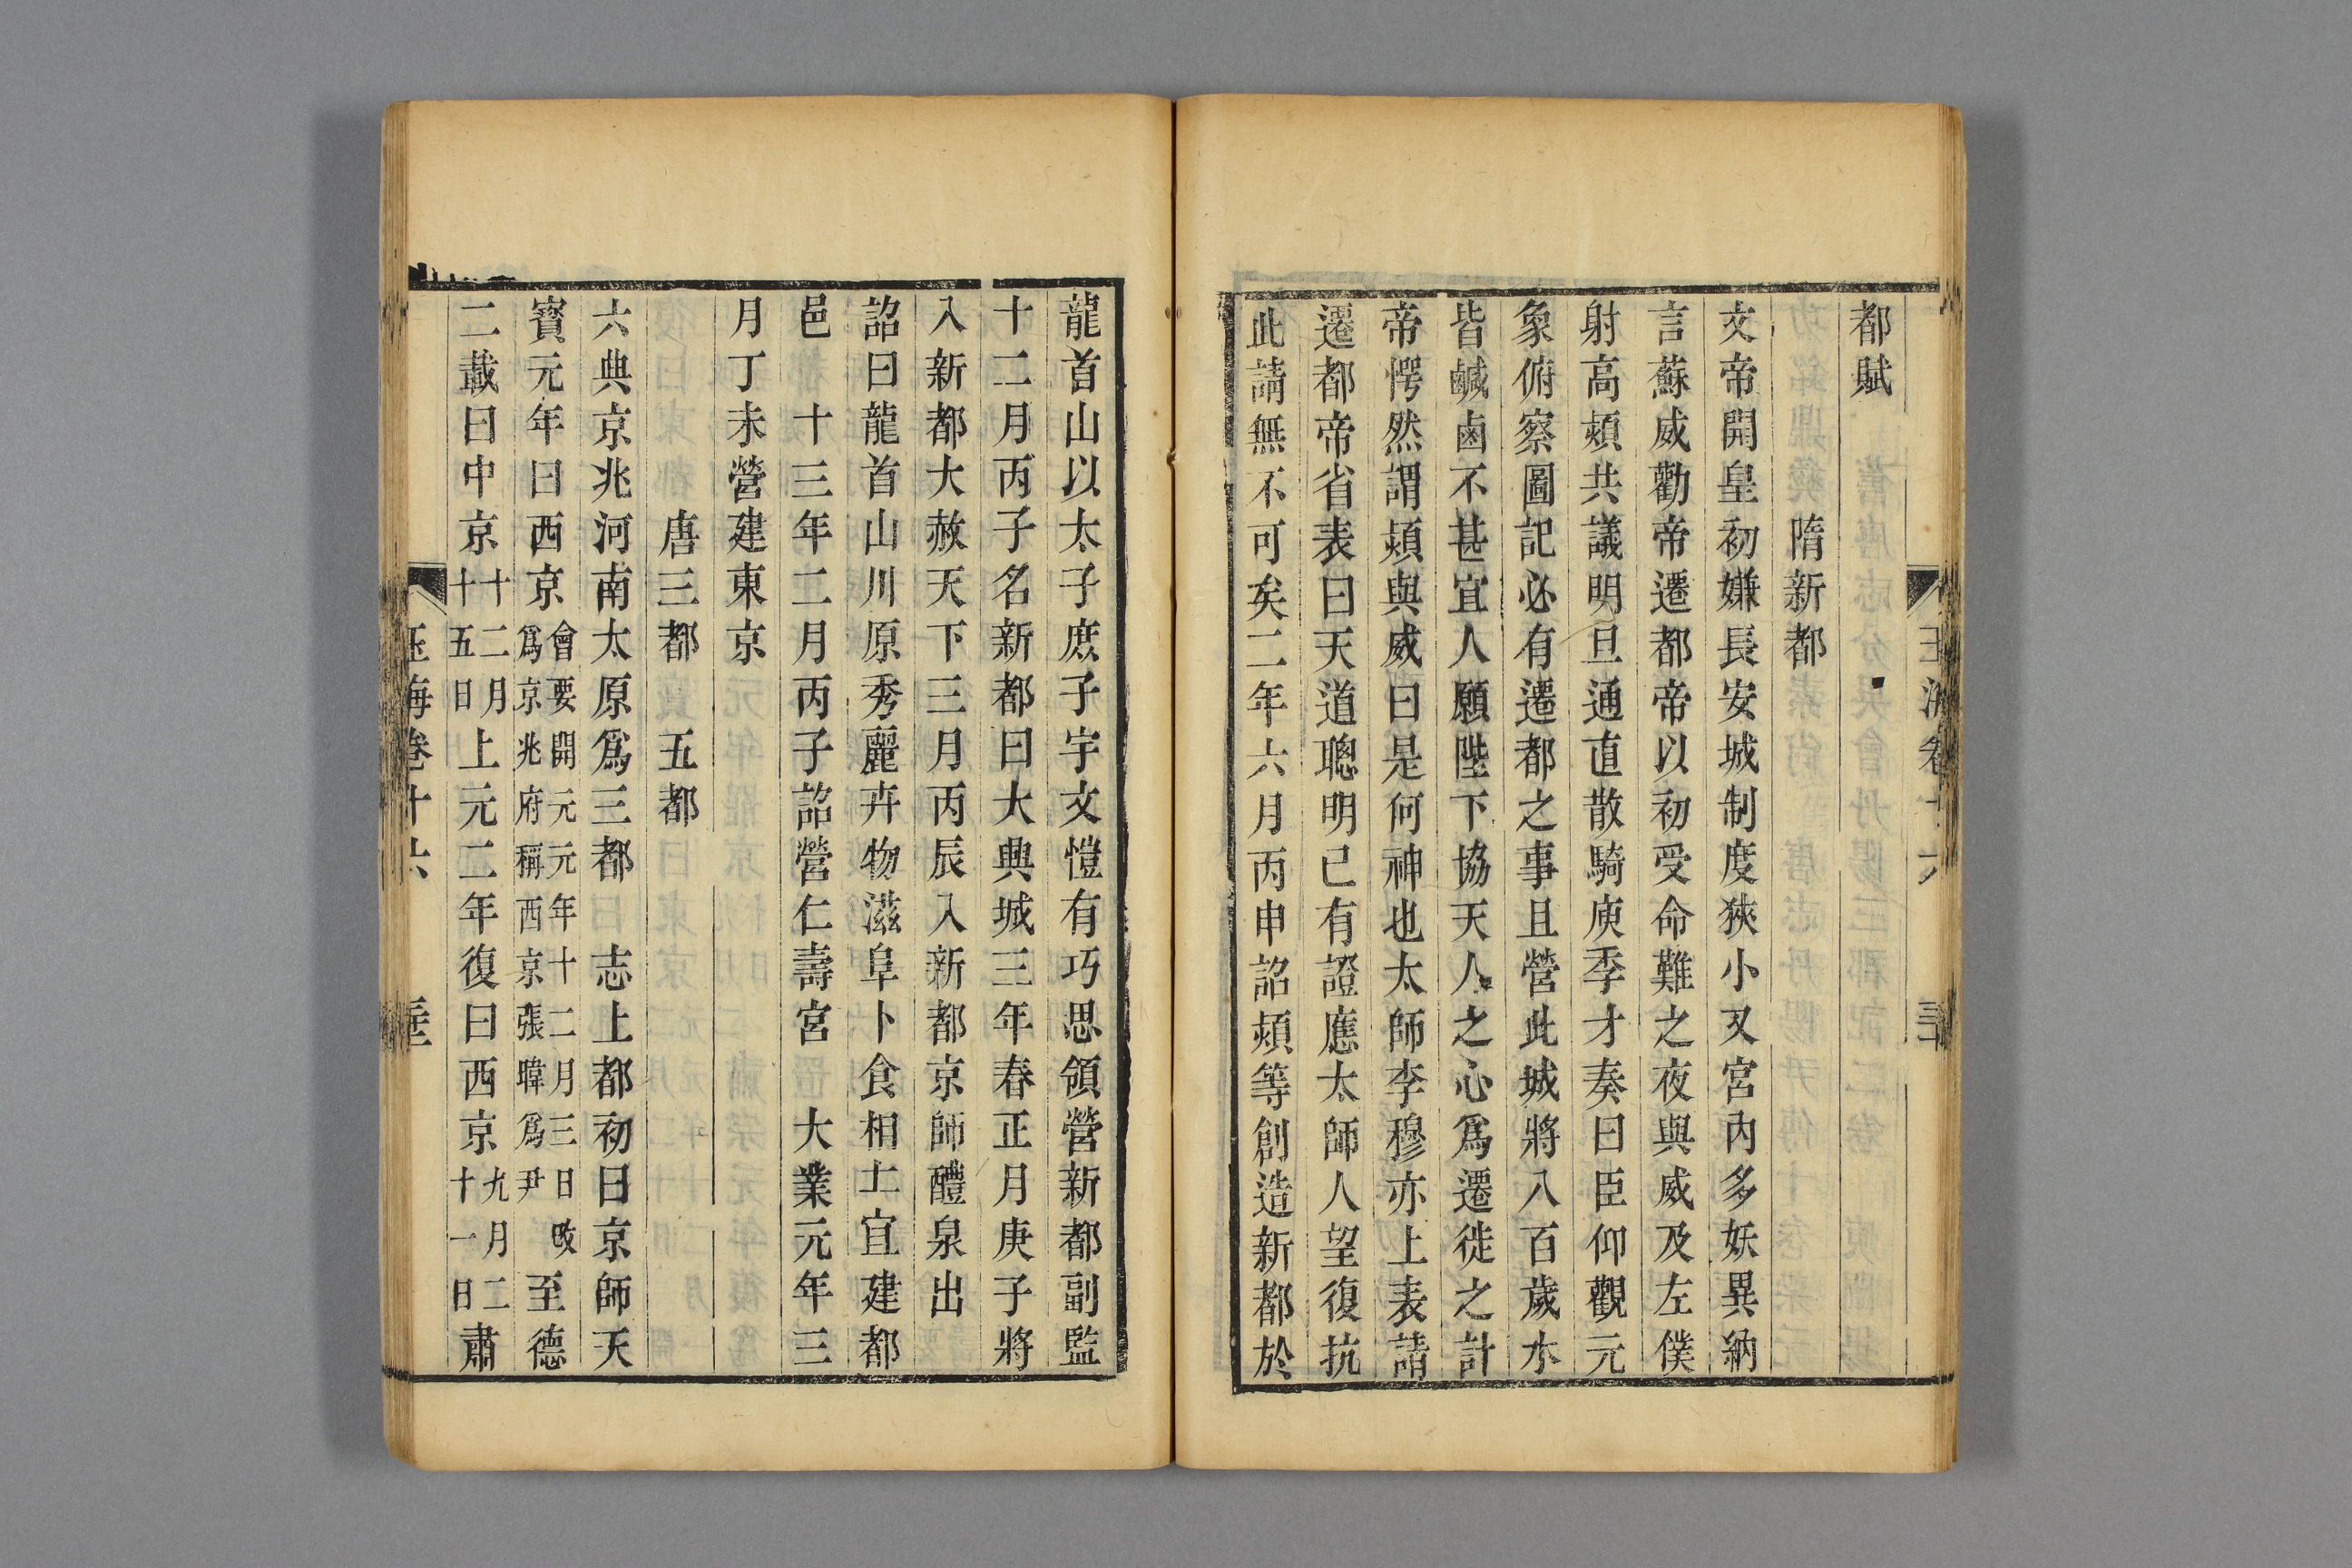 都賦
隋新都
文帝開皇初嫌長安城制度狹小又宮內多妖異納
言蘇威勸帝遷都帝以初受命難之夜與威及左僕
射高熲共議明旦通直散騎庾季才奏曰臣仰觀元
象俯察圖記必有遷都之事且營此城將八百歲水
皆鹹鹵不甚宜人願陛下協天人之心爲遷徙之計
帝愕然謂熲與威曰是何神也太師李穆亦上表請
遷都帝省表曰天道聰明已有證應太師人望復抗
此請無不可矣二年六月丙申詔熲等創造新都於
龍首山以太子庶子宇文愷有巧思領營新都副監
十二月丙子名新都曰大興城三年春正月庚子將
入新都大赦天下三月丙辰入新都京師醴泉出
詔曰龍首山川原秀麗卉物滋阜卜食相土宜建都
邑　十三年二月丙子詔營仁壽宮　大業元年三
月丁未營建東京
唐三都　五都
六典京兆河南太原爲三都　志上都初曰京師天
寶元年曰西京會要開元元年十二月三日改爲京兆府稱西京張暐爲尹至德
二載曰中京十二月十五日上元二年復曰西京九月二十一日肅
玉海卷十六